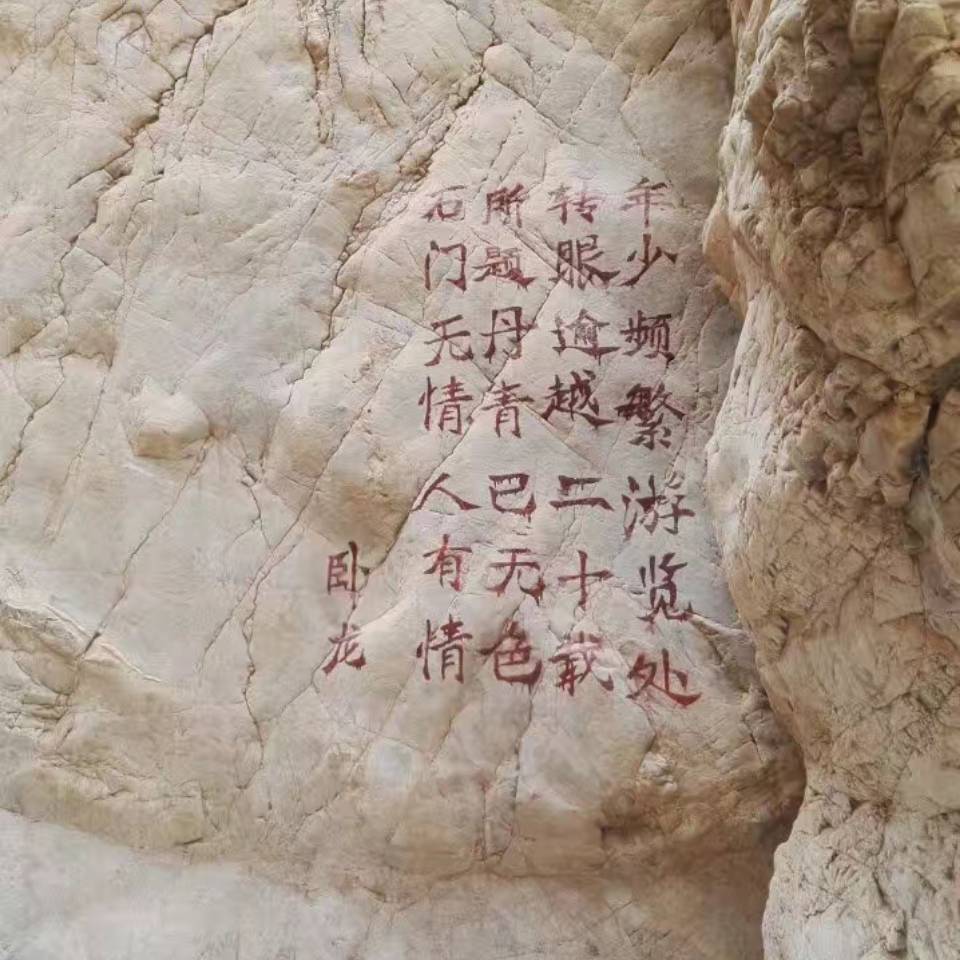 年少频繁游览处
转眼逾越二十载
所题丹青已无色
石门无情人有情
卧龙